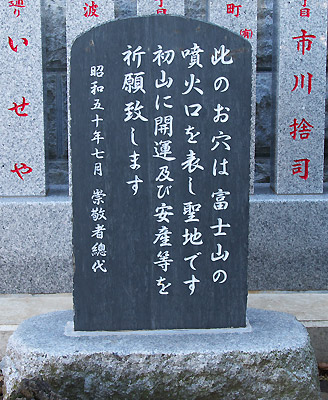 此のお穴は富士山の
噴火口を表し聖地です
初山に開運及び安産等を
祈願致します
昭和五十年七月 崇敬者總代
市川捨司
町
波
通り いせや